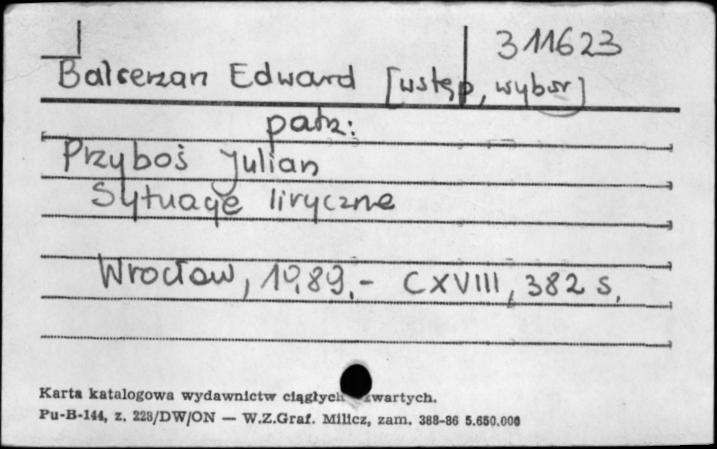 311623
Balcerzan Edward [wstęp, wybór]
patrz:
Przyboś Julian
Sytuacje liryczne
Wrocław, 1989.- CXVIII, 382 s.
Karta katalogowa wydawnictw ciągłych zwartych.
Pu-B-144, z. 228/DW/ON — W.Z.Graf. Milicz, zam. 388-86 5.650.000